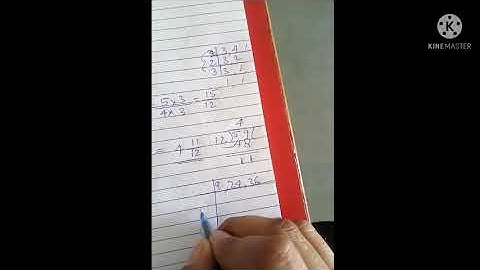 KINEMASTER
3 | 3, 4, 1
2 | 3, 2
3 | 3, 1
1, 1
5 x 3 / 4 x 3 = 15 / 12
= 4 11/12   12) 59 (4
48
11
9, 24, 36